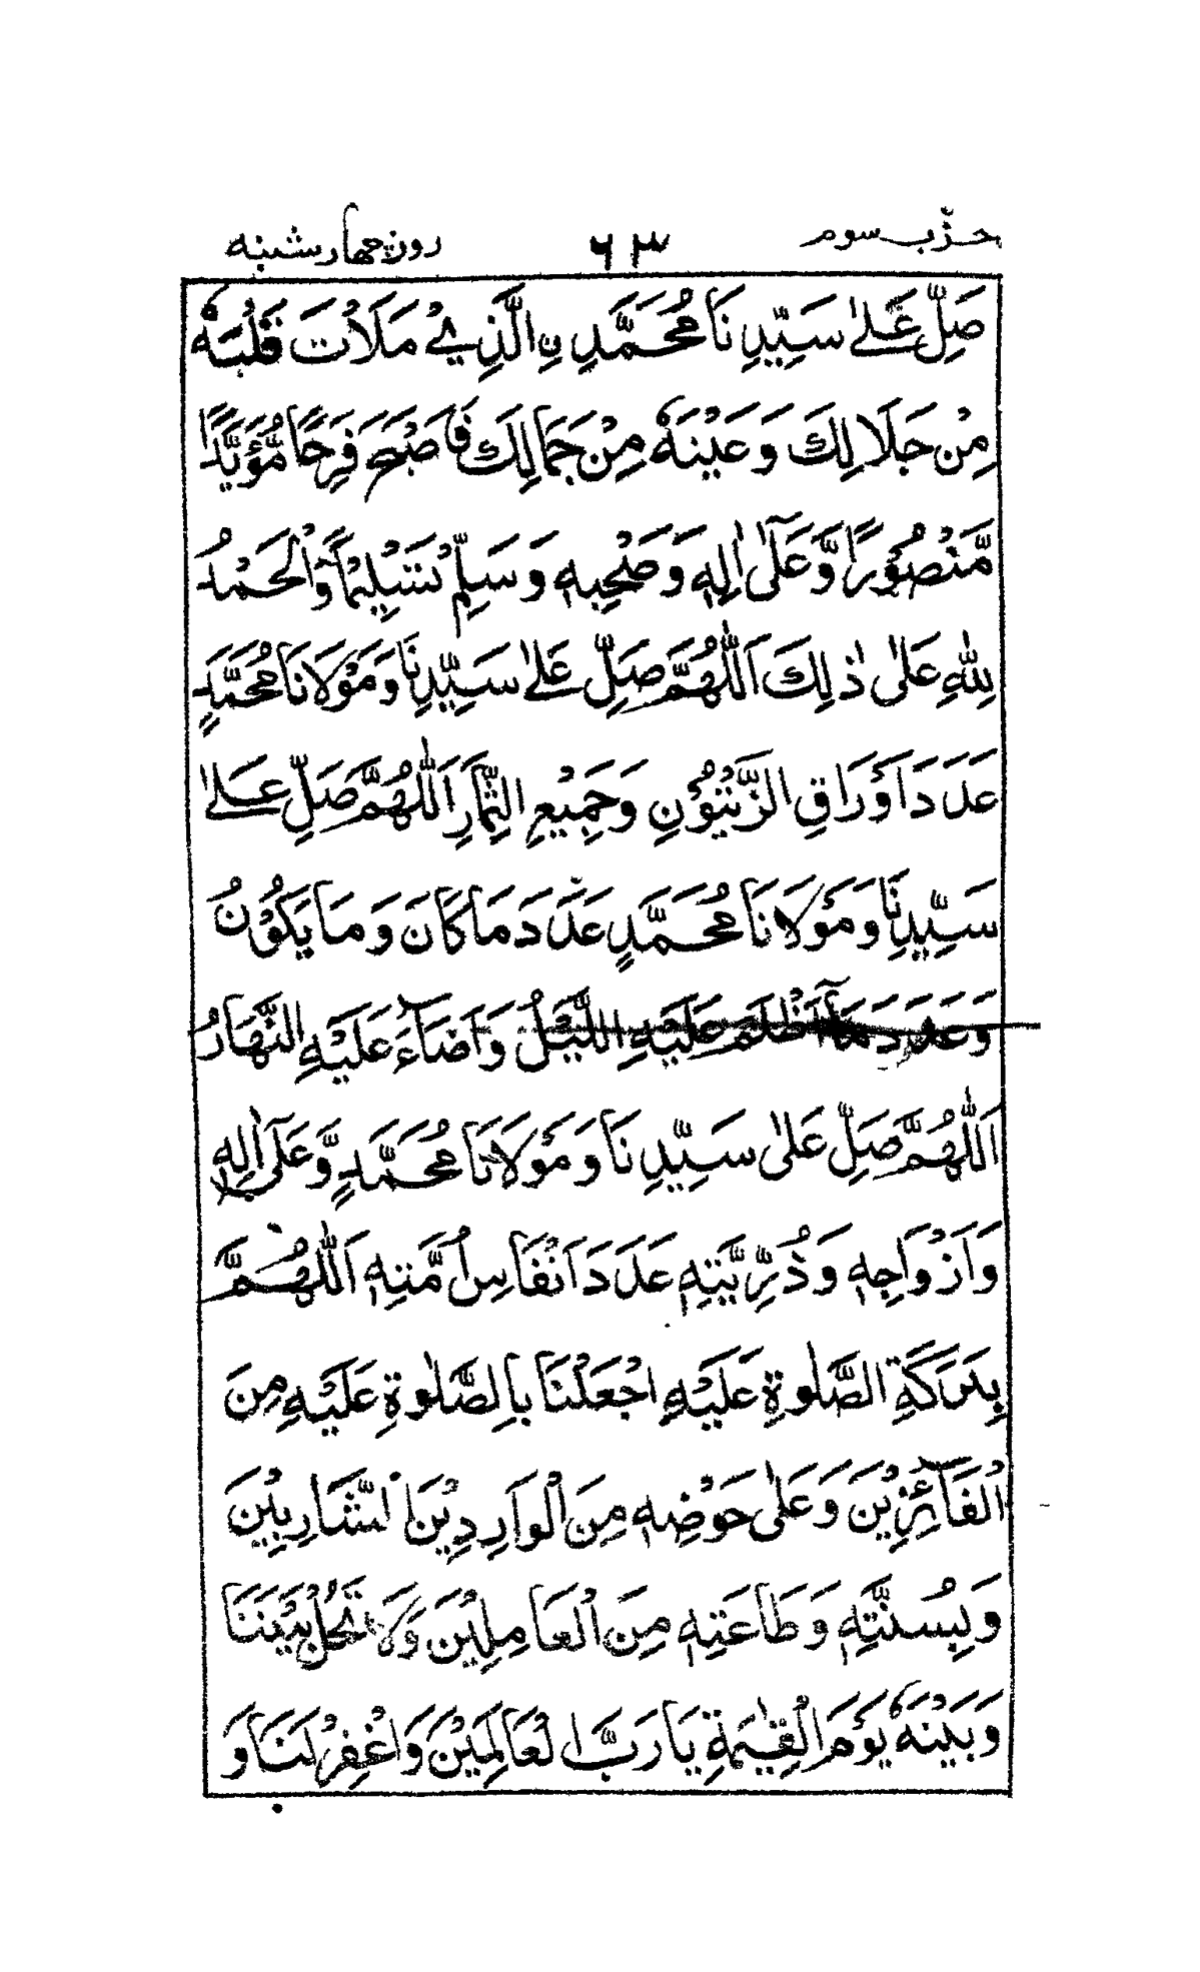 حزب سوم ٦٣ روز چهار شنبه
صَلِّ عَلٰى سَيِّدِنَا مُحَمَّدِ نِ الَّذِيْ مَلَأْتَ قَلْبَهٗ
مِنْ جَلَالِكَ وَعَيْنَهٗ مِنْ جَمَالِكَ فَاَصْبَحَ فَرِحًا مُّؤَيَّدًا
مَّنْصُوْرًا وَّعَلٰٓى اٰلِهٖ وَصَحْبِهٖ وَسَلِّمْ تَسْلِيْمًا وَّالْحَمْدُ
لِلّٰهِ عَلٰى ذٰلِكَ اَللّٰهُمَّ صَلِّ عَلٰى سَيِّدِنَا وَمَوْلَانَا مُحَمَّدٍ
عَدَدَ اَوْرَاقِ الزَّيْتُوْنِ وَجَمِيْعِ الثِّمَارِ اَللّٰهُمَّ صَلِّ عَلٰى
سَيِّدِنَا وَمَوْلَانَا مُحَمَّدٍ عَدَدَ مَا كَانَ وَمَا يَكُوْنُ
وَعَدَدَ مَآ اَظْلَمَ عَلَيْهِ اللَّيْلُ وَاَضَآءَ عَلَيْهِ النَّهَارُ
اَللّٰهُمَّ صَلِّ عَلٰى سَيِّدِنَا وَمَوْلَانَا مُحَمَّدٍ وَّعَلٰٓى اٰلِهٖ
وَاَزْوَاجِهٖ وَذُرِّيَّتِهٖ عَدَدَ اَنْفَاسِ اُمَّتِهٖ اَللّٰهُمَّ
بِبَرَكَةِ الصَّلٰوةِ عَلَيْهِ اجْعَلْنَا بِالصَّلٰوةِ عَلَيْهِ مِنَ
الْفَآئِزِيْنَ وَعَلٰى حَوْضِهٖ مِنَ الْوَارِدِيْنَ الشَّارِبِيْنَ
وَبِسُنَّتِهٖ وَطَاعَتِهٖ مِنَ الْعَامِلِيْنَ وَلَا تَحُلْ بَيْنَنَا
وَبَيْنَهٗ يَوْمَ الْقِيٰمَةِ يَا رَبَّ الْعَالَمِيْنَ وَاغْفِرْ لَنَا وَ